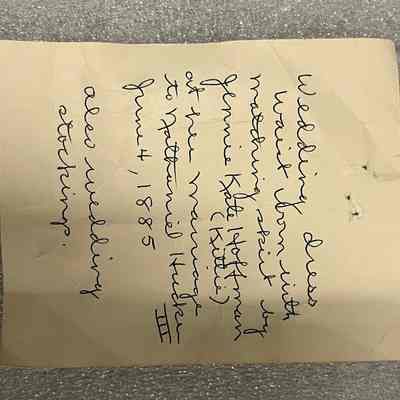 Wedding dress
waist worn with
matching skirt by
Jennie Kate Hoffman
(Kittie)
at her marriage
to Nathaniel
III
June 4, 1885
also wedding
stockings.